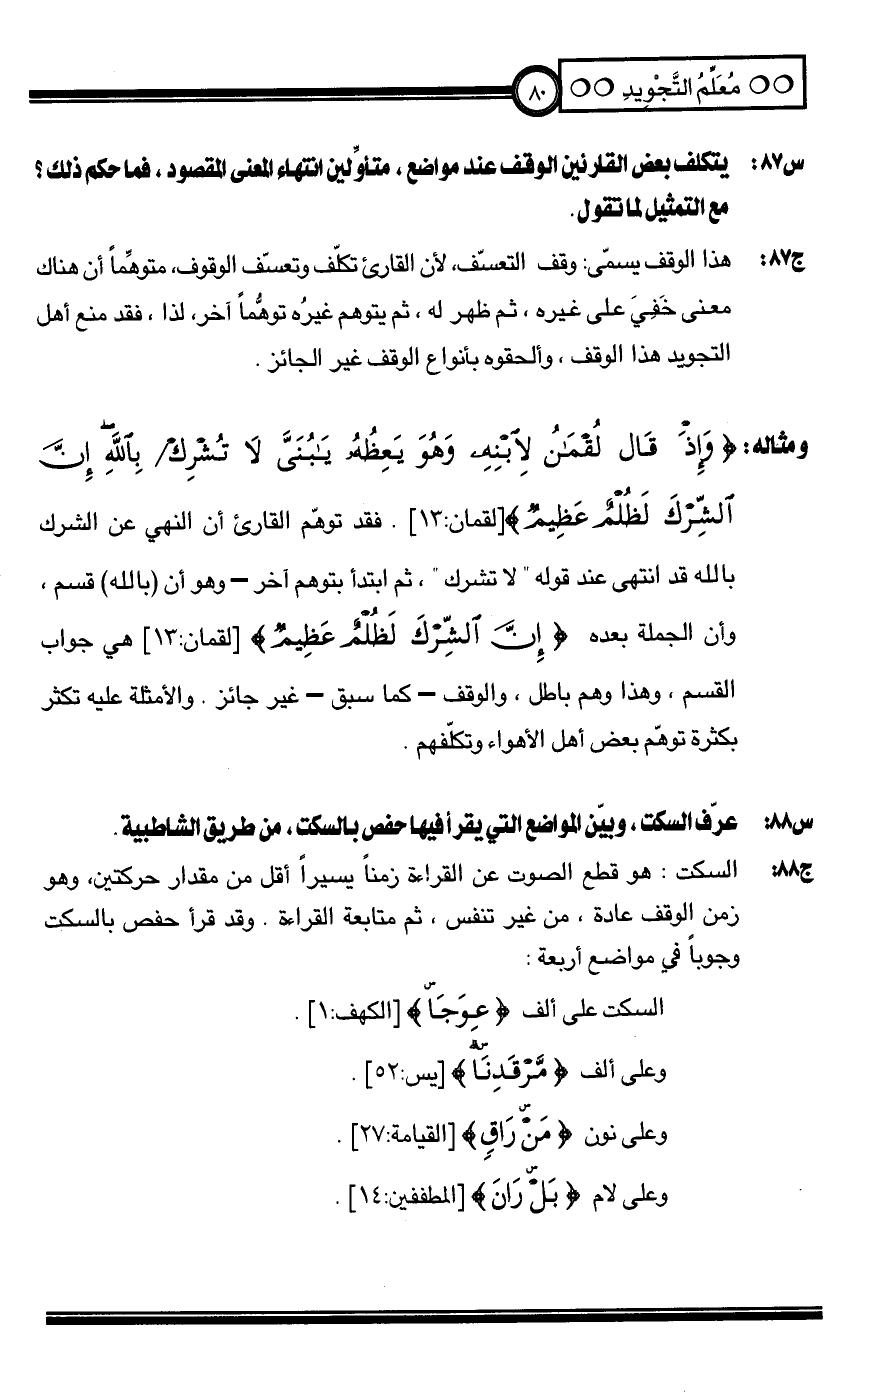 مُعَلِّمُ التَّجْوِيدِ ٨٠
س٨٧: يتكلف بعض القارئين الوقف عند مواضع ، متأوِّلين انتهاء المعنى المقصود ، فما حكم ذلك ؟
مع التمثيل لما تقول.
ج٨٧: هذا الوقف يسمّى: وقف التعسّف، لأن القارئ تكلّف وتعسّف الوقوف، متوهِّماً أن هناك
معنى خَفِيَ على غيره ، ثم ظهر له ، ثم يتوهم غيرُه توهُّماً آخر، لذا ، فقد منع أهل
التجويد هذا الوقف ، وألحقوه بأنواع الوقف غير الجائز .
ومثاله: ﴿ وَإِذْ قَالَ لُقْمَـٰنُ لِٱبْنِهِۦ وَهُوَ يَعِظُهُۥ يَـٰبُنَىَّ لَا تُشْرِكْ بِٱللَّهِ ۖ إِنَّ
ٱلشِّرْكَ لَظُلْمٌ عَظِيمٌ ﴾[لقمان:١٣] . فقد توهّم القارئ أن النهي عن الشرك
بالله قد انتهى عند قوله " لا تشرك " ، ثم ابتدأ بتوهم آخر – وهو أن (بالله) قسم ،
وأن الجملة بعده ﴿ إِنَّ ٱلشِّرْكَ لَظُلْمٌ عَظِيمٌ ﴾ [لقمان:١٣] هي جواب
القسم ، وهذا وهم باطل ، والوقف – كما سبق – غير جائز . والأمثلة عليه تكثر
بكثرة توهّم بعض أهل الأهواء وتكلّفهم .
س٨٨: عرّف السكت ، وبيّن المواضع التي يقرأ فيها حفص بالسكت ، من طريق الشاطبية .
ج٨٨: السكت : هو قطع الصوت عن القراءة زمناً يسيراً أقل من مقدار حركتين، وهو
زمن الوقف عادة ، من غير تنفس ، ثم متابعة القراءة . وقد قرأ حفص بالسكت
وجوباً في مواضع أربعة :
السكت على ألف ﴿ عِوَجَاۜ ﴾ [الكهف:١] .
وعلى ألف ﴿ مَّرْقَدِنَاۜ ﴾ [يس:٥٢] .
وعلى نون ﴿ مَنْۜ رَاقٍ ﴾ [القيامة:٢٧] .
وعلى لام ﴿ بَلْۜ رَانَ ﴾ [المطففين:١٤] .